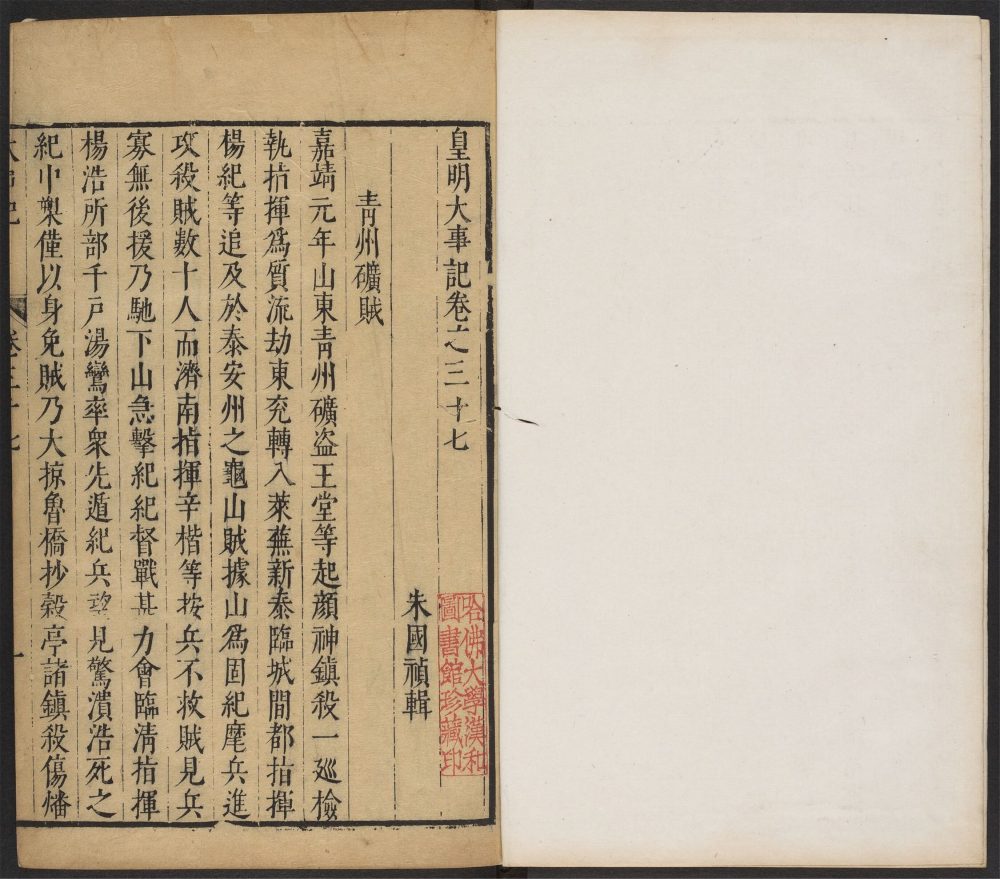 皇明大事記卷之三十七
朱國禎輯
青州礦賊
嘉靖元年山東青州礦盜王堂等起顏神鎮殺一廵檢
執指揮爲質流劫東兖轉入萊蕪新泰臨城間都指揮
楊紀等追及於泰安州之龜山賊據山爲固紀麾兵進
攻殺賊數十人而濟南指揮辛楷等按兵不救賊見兵
寡無後援乃馳下山急擊紀紀督戰甚力會臨清指揮
楊浩所部千戸湯鸞率衆先遁紀兵望見驚潰浩死之
紀中槊僅以身免賊乃大掠魯橋抄穀亭諸鎮殺傷燔
大事記 卷三十七 一
哈佛大學漢和
圖書館珍藏印